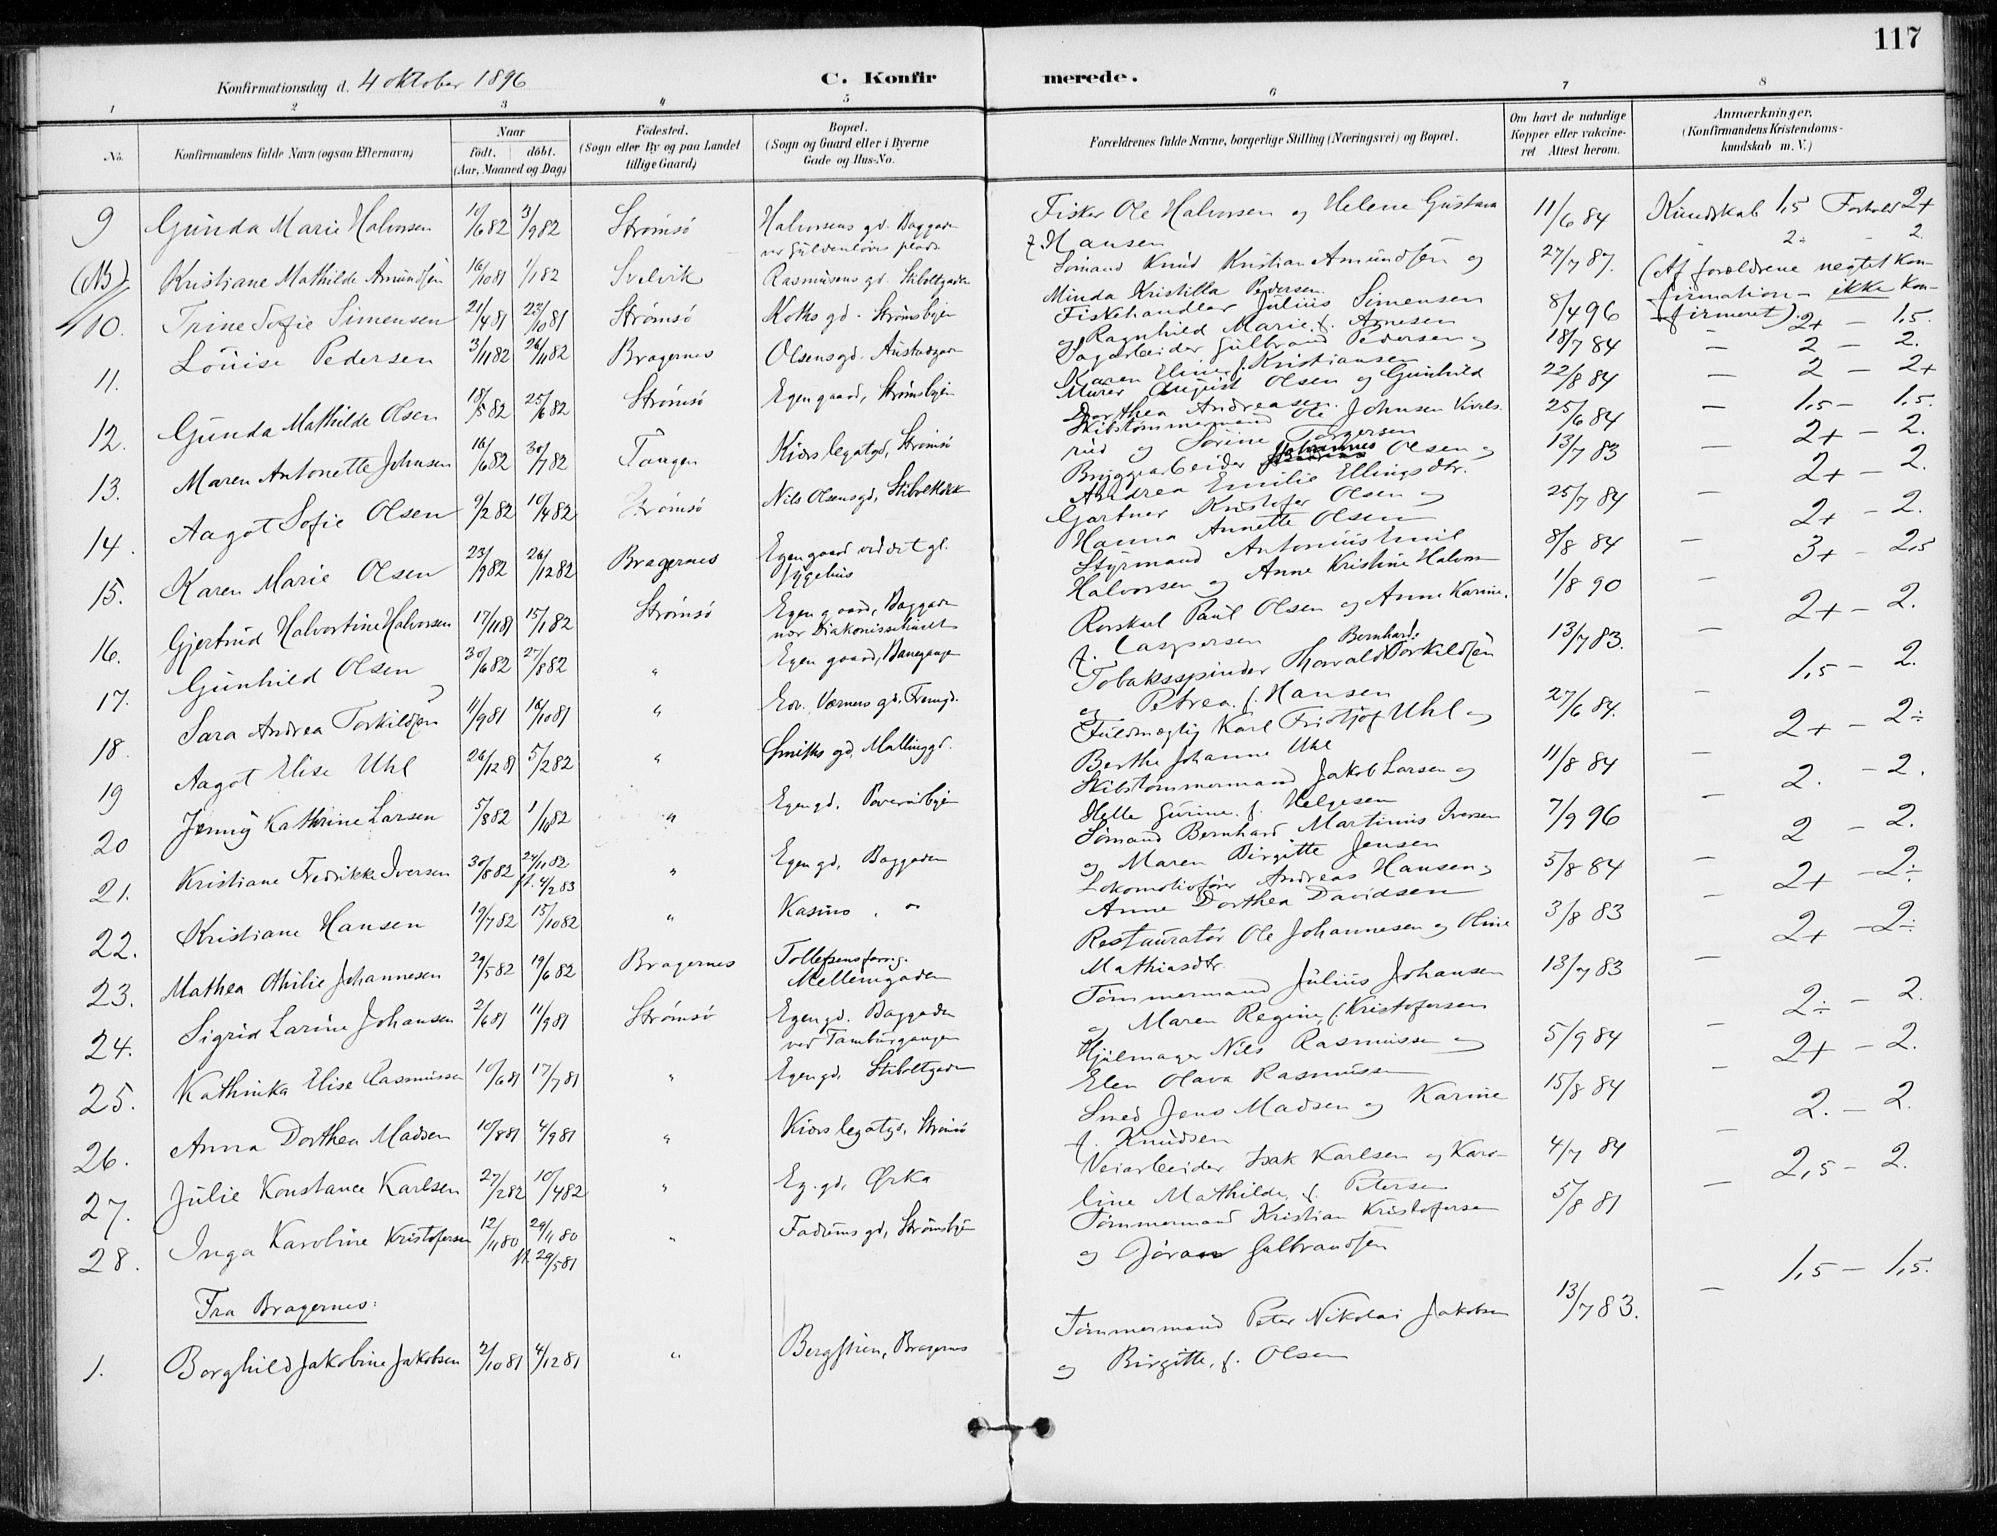 117
Konfirmationsdag d. 4 oktober 1896
C. Konfirmerede.
1 2 3 4 5 6 7 8
No.
Konfirmandens fulde Navn (ogsaa Efternavn)
Naar
født. døbt.
(Aar, Maaned og Dag)
Fødested.
(Sogn eller By og paa Landet
tillige Gaard)
Bopæl.
(Sogn og Gaard eller i Byerne
Gade og Hus-No.
Forældrenes fulde Navne, borgerlige Stilling (Næringsvei) og Bopæl.
Om havt de naturlige
Kopper eller vakcine-
ret Attest herom.
Anmærkninger.
(Konfirmandens Kristendoms-
kundskab m. V.)
9 Gunda Marie Halvorsen 10/6 82 3/9 82 Strømsø Halvorsens gd. Baggaden
ved Gyldenløves plads
Fisker Ole Halvorsen og Helene Gustava
f. Hansen
11/6 84 Kundskab 1,5 Forhold 2+
(10) Kristiane Mathilde Amundsen 16/10 81 1/1 82 Svelvik Rasmusens gd. Stiboltgaden
Sømand Knud Kristian Amundsen og
Minda Kristilla Pedersen
27/7 87. 2÷ - 2
(Af forældrene negtet kon-
firmation - ikke kon-
firmeret).
10. Trine Sofie Simensen 21/4 81 23/10 81 Strømsø Koths gd. Strømsbyen
Fiskehandler Julius Simensen
og Ragnhild Marie, f. Arnesen
8/4 96 2+ - 1,5.
11. Louise Pedersen 3/11 82 26/11 82 Bragernes Olsens gd. Austadgaden
Sagarbeider Gulbrand Pedersen og
Karen Eline f. Kristiansen
18/7 84 - 2 - 2.
12. Gunda Mathilde Olsen 18/5 82 25/6 82 Strømsø Egen gaard, Strømsbyen
Murer August Olsen og Gunhild
Dorthea Andreasen.
22/8 84 - 2 - 2+
13. Maren Antonette Johnsen 16/6 82 30/7 82 Tangen Kiørs legatgd, Strømsø
Skibstømmermand Ole Johnsen Kvils-
rud og Sørine Torgersen
25/6 84 - 1,5 - 1,5.
14. Aagot Sofie Olsen 9/2 82 10/4 82 Strømsø Nils Olsens gd,
Bryggearbeider Johannes Olsen og
Andrea Emilie Ellingsdtr.
13/7 83 2+ - 2.
15. Karen Marie Olsen 23/9 82 26/12 82 Bragernes Egen gaard ved det gl.
sygehus
Gartner Kristofer Olsen og
Hanna Annette Olsen
25/7 84 - 2+ - 2.
16. Gjertrud Halvortine Halvorsen 17/11 81 15/1 82 Strømsø Egen gaard, Baggaden
nær Diakonissehuset
Styrmand Antonius Emil
Halvorsen og Anne Kristine Halvorsen
8/8 84 - 2+ - 2.
17. Gunhild Olsen 30/6 82 27/8 82 " Egen gaard, Banegangen
Rorskarl Paul Olsen og Anne Karine,
f. Caspersen
1/8 90 - 3+ - 2,5
18. Sara Andrea Torkildsen 11/9 81 16/10 81 " Edv. Værners gd. Tremgd.
Tobaksspinder Thorvald Bernhard Torkildsen
og Petrea f. Hansen
13/7 83. - 2+ - 2.
19 Aagot Elise Uhl 26/12 81 5/2 82 " Smiths gd, Mallinggd.
Fuldmægtig Karl Fridtjof Uhl og
Berthe Johanne Uhl
27/6 84. - 1,5 - 2.
20 Jenny Kathrine Larsen 5/8 82 1/10 82 " Egen gd. Poverudbyen
Skibstømmermand Jakob Larsen og
Helle Gurine f. Helgesen
11/8 84 - 2+ - 2÷
21. Kristiane Fredrikke Iversen 30/8 82 24/11 82
ft. 4/2 83 " Egen gd, Baggaden
Sømand Bernhard Martinus Iversen
og Maren Birgitte Jensen
7/9 96 - 2. - 2.
22. Kristiane Hansen 19/7 82 15/10 82 " Kasino, "
Lokomotivfører Andreas Hansen og
Anne Dorthea Davidsen
5/8 84 - 2 - 2.
23. Mathea Othilie Johannesen 29/5 82 19/6 82 Bragernes Tollefsens
Mellemgaden
Restauratør Ole Johannesen og Oline
Mathiasdtr.
3/8 83 - 2+ - 2÷
24. Sigrid Larine Johansen 2/6 81 11/9 81 Strømsø Egen gd. Baggaden
ved Tamburgangen
Tømmermand Julius Johansen
og Maren Regine, f. Kristofersen
13/7 83 - 2+ - 2÷
25. Kathinka Elise Rasmussen 10/6 81 17/7 81 " Egen gd, Stiboltgaden
Hjulmager Nils Rasmussen og
Elen Olava Rasmussen
5/9 84 - 2÷ - 2.
26. Anna Dorthea Madsen 10/8 81 4/9 81 " Kiørs legatgd, Strømsø
Smed Jens Madsen og Karine
f. Knudsen
15/8 84 - 2+ - 2.
27. Julie Konstance Karlsen 27/2 82 10/4 82 " Eg. gd, Ørka
Veiarbeider Isak Karlsen og Karo-
line Mathilde, f. Petersen
4/7 84 - 2. - 2.
28. Inga Karoline Kristofersen 12/11 80 29/11 80
ft. 29/5 81 " Fadums gd, Strømsbyen
Tømmermand Kristian Kristofersen
og Jøran Gulbrandsen
5/8 81 - 2,5 - 2.
Fra Bragernes:
1. Borghild Jakobine Jakobsen 2/10 81 4/12 81 " Bergstien, Bragernes
Tømmermand Peter Nikolai Jakobsen
og Birgitte, f. Olsen
13/7 83. - 1,5 - 1,5.